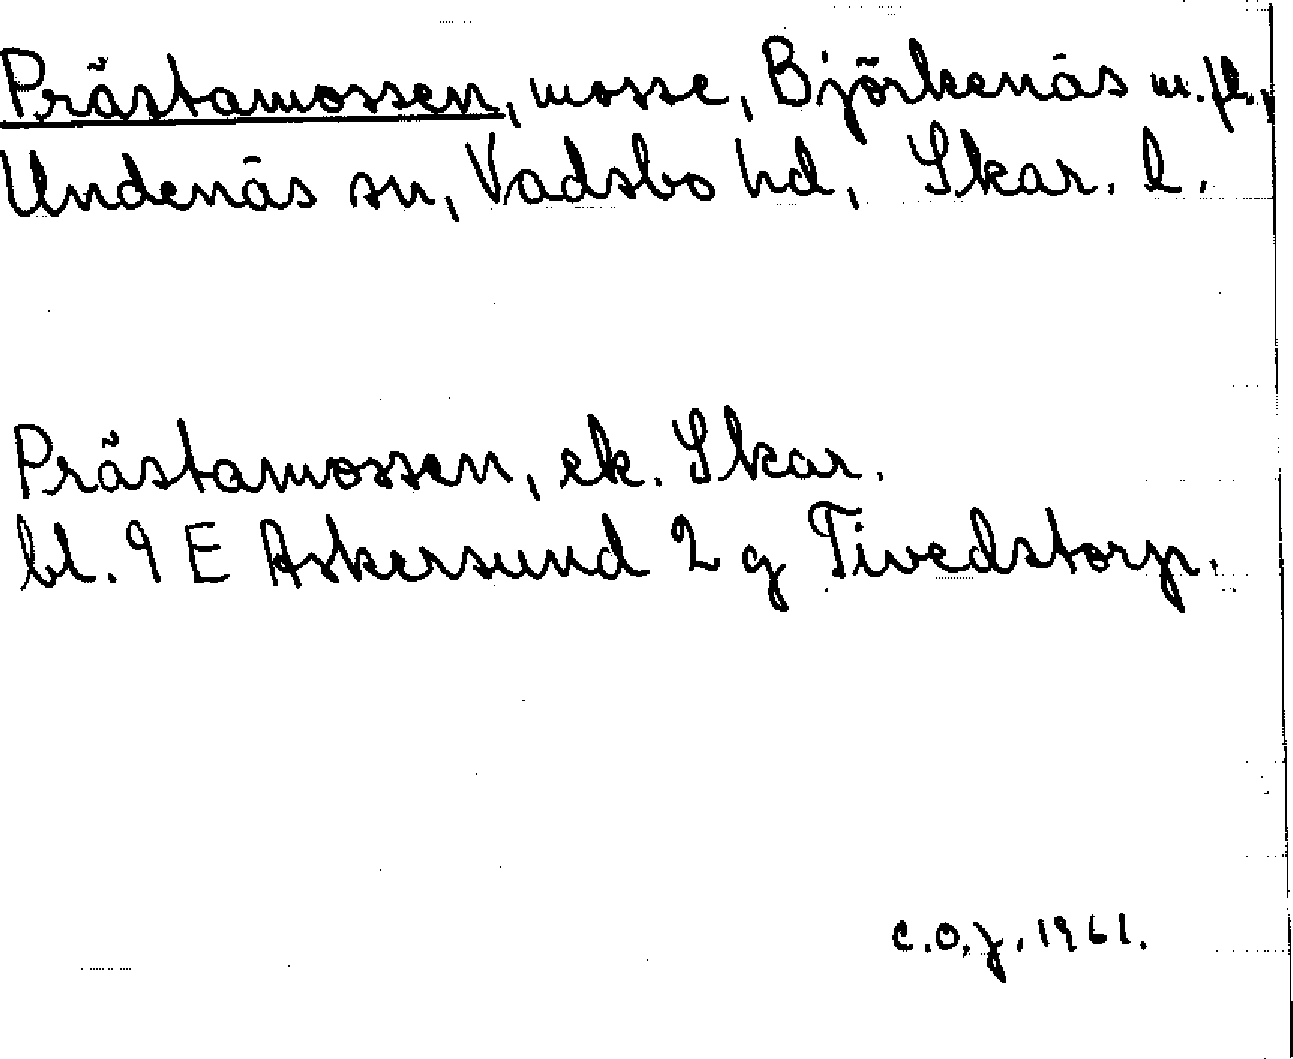 Prästamossen, mosse, Björkenäs m.fl.,
Undenäs sn, Vadsbo hd, Skar. l.
Prästamossen, ek. Skar.
bl. 9 E Askersund 2 g Tivedstorp.
C.O.J. 1961.